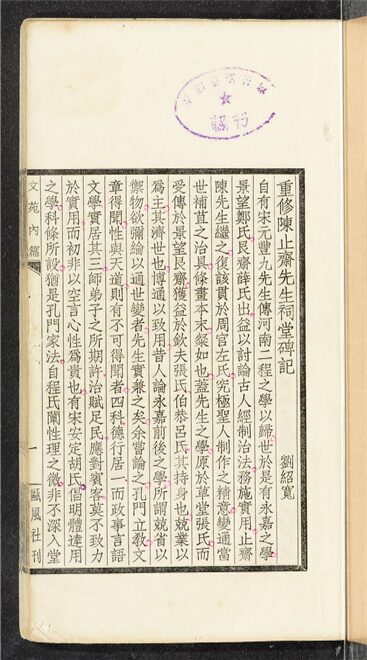 重修陳止齋先生祠堂碑記
劉紹寬
自有宋元豐九先生傳河南二程之學以歸世於是有永嘉之學
景望鄭氏艮齋薛氏出益以討論古人經制治法務施實用止齋
陳先生繼之復該貫於周官左氏究極聖人制作之精意變通當
世補苴之治具條畫本末粲如也蓋先生之學原於草堂張氏而
愛傳於景望艮齋獲益於欽夫張氏伯恭呂氏其持身也兢業以
爲主其濟世也博通以致用昔人論永嘉前後之學所謂兢省以
禦物欲彌綸以通世變者先生實兼之矣余嘗論之孔門立教文
章得聞性與天道則有不可得聞者四科德行居一而政事言語
文學實居其三師弟子之所期許治賦足民應對賓客莫不致力
於實用而初非以空言心性爲貴也有宋安定胡氏倡明體達用
之學科條所設猶是孔門家法自程氏闡性理之微非不深入堂
文苑內篇
一
甌風社刊